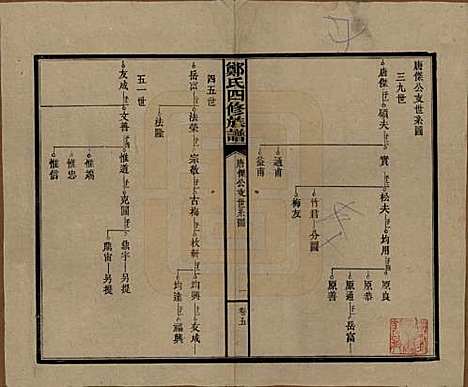 唐傑公支世系圖
三九世
唐傑 碩夫 實 松夫 均用 原良
原恭
原通 岳富
原善
竹君 分圖
梅友
通甫
益甫
鄭氏四修族譜
唐傑公支世系圖
一
卷五
四五世
岳富 法榮 宗敬 古梅 枝新 均興 友成
均達 福興
法隆
五一世
友成 文善 惟道 克圖 鼎宇 另提
鼎宙 另提
惟鴻
惟忠
惟信